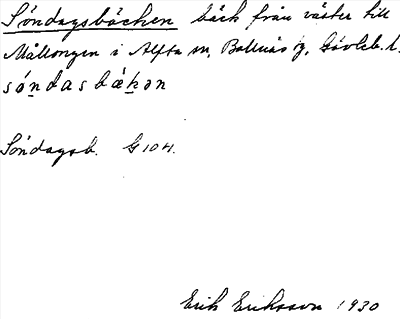 Söndagsbäcken bäck från väster till
Mållongen i Alfta sn, Bollnäs tg. Gävleb. l.
söndasbäkən
Söndagsb. G 104.
Erik Eriksson 1930